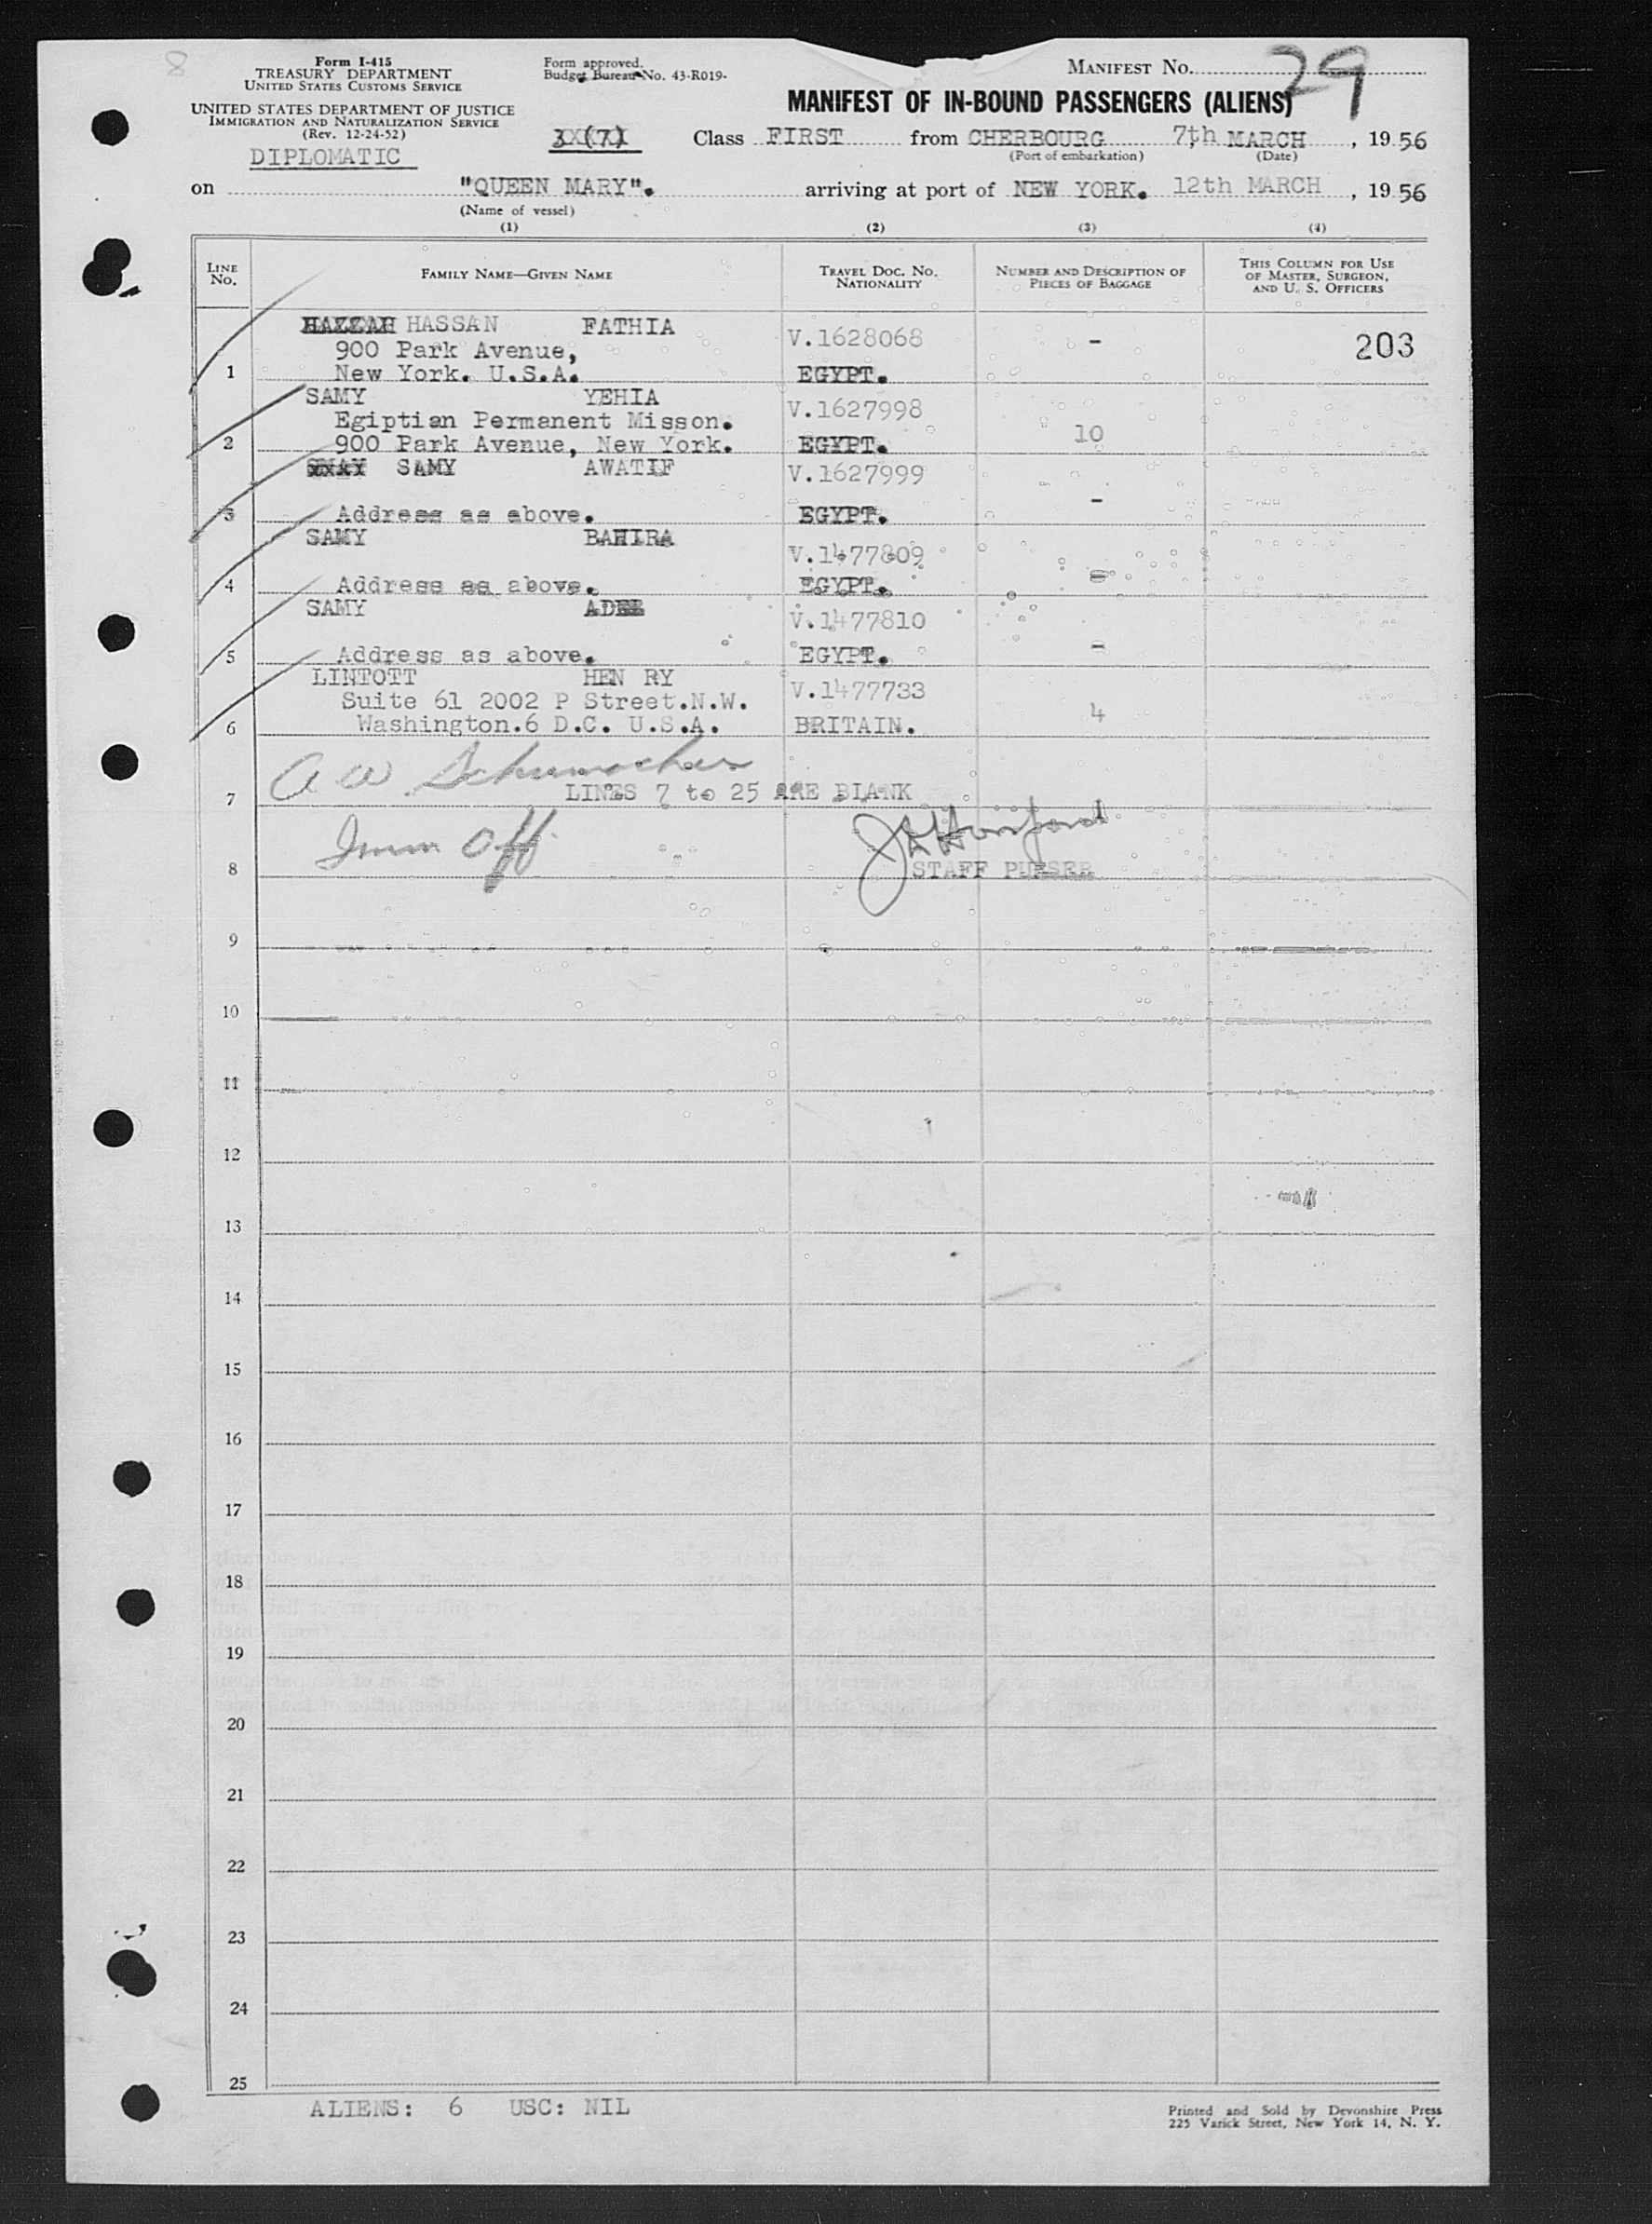 8
Form I-415
TREASURY DEPARTMENT
UNITED STATES CUSTOMS SERVICE
UNITED STATES DEPARTMENT OF JUSTICE
IMMIGRATION AND NATURALIZATION SERVICE
(Rev. 12-24-52)
DIPLOMATIC
Form approved.
Budget Bureau No. 43-R019-
MANIFEST No. 29
MANIFEST OF IN-BOUND PASSENGERS (ALIENS)
Class FIRST from CHERBOURG 7th MARCH, 1956
(Port of embarkation) (Date)
on "QUEEN MARY". arriving at port of NEW YORK. 12th MARCH, 1956
(Name of vessel)
(1) (2) (3) (4)
LINE No. FAMILY NAME—GIVEN NAME TRAVEL DOC. NO. NATIONALITY NUMBER AND DESCRIPTION OF PIECES OF BAGGAGE THIS COLUMN FOR USE OF MASTER, SURGEON, AND U. S. OFFICERS
HASSAN FATHIA V.1628068 - 203
900 Park Avenue,
1 New York. U.S.A. EGYPT.
SAMY YEHIA V.1627998
Egiptian Permanent Misson. 10
2 900 Park Avenue, New York. EGYPT.
SAMY AWATIF V.1627999
-
3 Address as above. EGYPT.
SAMY BAHIRA V.1477809
4 Address as above. EGYPT. -
SAMY V.1477810
5 Address as above. EGYPT. -
LINTOTT HEN RY V.1477733
Suite 61 2002 P Street.N.W. 4
6 Washington.6 D.C. U.S.A. BRITAIN.
A W Schumacher
7 LINES 7 to 25 ARE BLANK
Imm Off
8 STAFF PURSER
9
10
11
12
13
14
15
16
17
18
19
20
21
22
23
24
25
ALIENS: 6 USC: NIL
Printed and Sold by Devonshire Press
225 Varick Street, New York 14, N. Y.